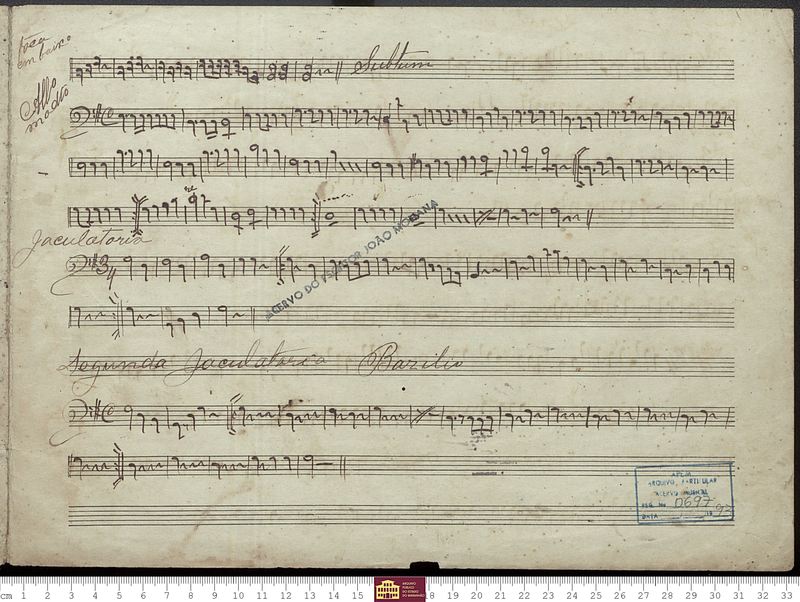 toca
em baixo
Subtum
Allo
modto
Jaculatoria
3/4
ACERVO DO PROFESSOR JOÃO MOHANA
Segunda Jaculatoria Bazilio
APEM
ARQUIVO PARTICULAR
ACERVO MUSICAL
REG. No 0697
DATA 19 93
cm 1 2 3 4 5 6 7 8 9 10 11 12 13 14 15 18 19 20 21 22 23 24 25 26 27 28 29 30 31 32 33
ARQUIVO
PÚBLICO
DO ESTADO
DO MARANHÃO